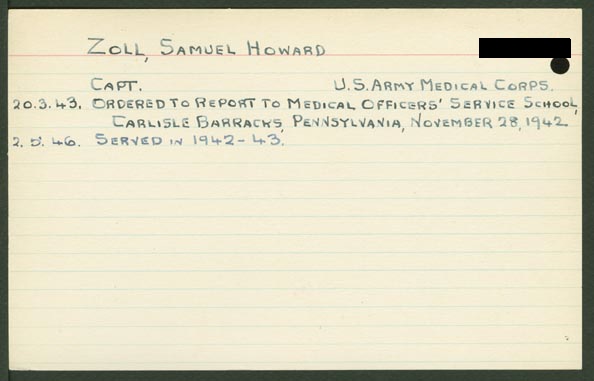 ZOLL, SAMUEL HOWARD
CAPT. U.S. ARMY MEDICAL CORPS.
20.3.43. ORDERED TO REPORT TO MEDICAL OFFICERS' SERVICE SCHOOL,
CARLISLE BARRACKS, PENNSYLVANIA, NOVEMBER 28, 1942
2.5.46. SERVED IN 1942-43.